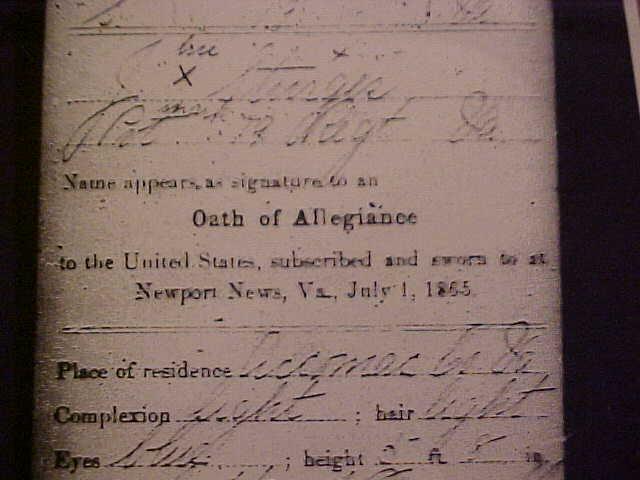 his
X Sturgis
mark
Pvt Regt Va.
Name appears as signature to an
Oath of Allegiance
to the United States, subscribed and sworn to at
Newport News, Va., July 1, 1865.
Place of residence Accomac Co Va
Complexion light ; hair light
Eyes blue ; height 5 ft. 8 in.